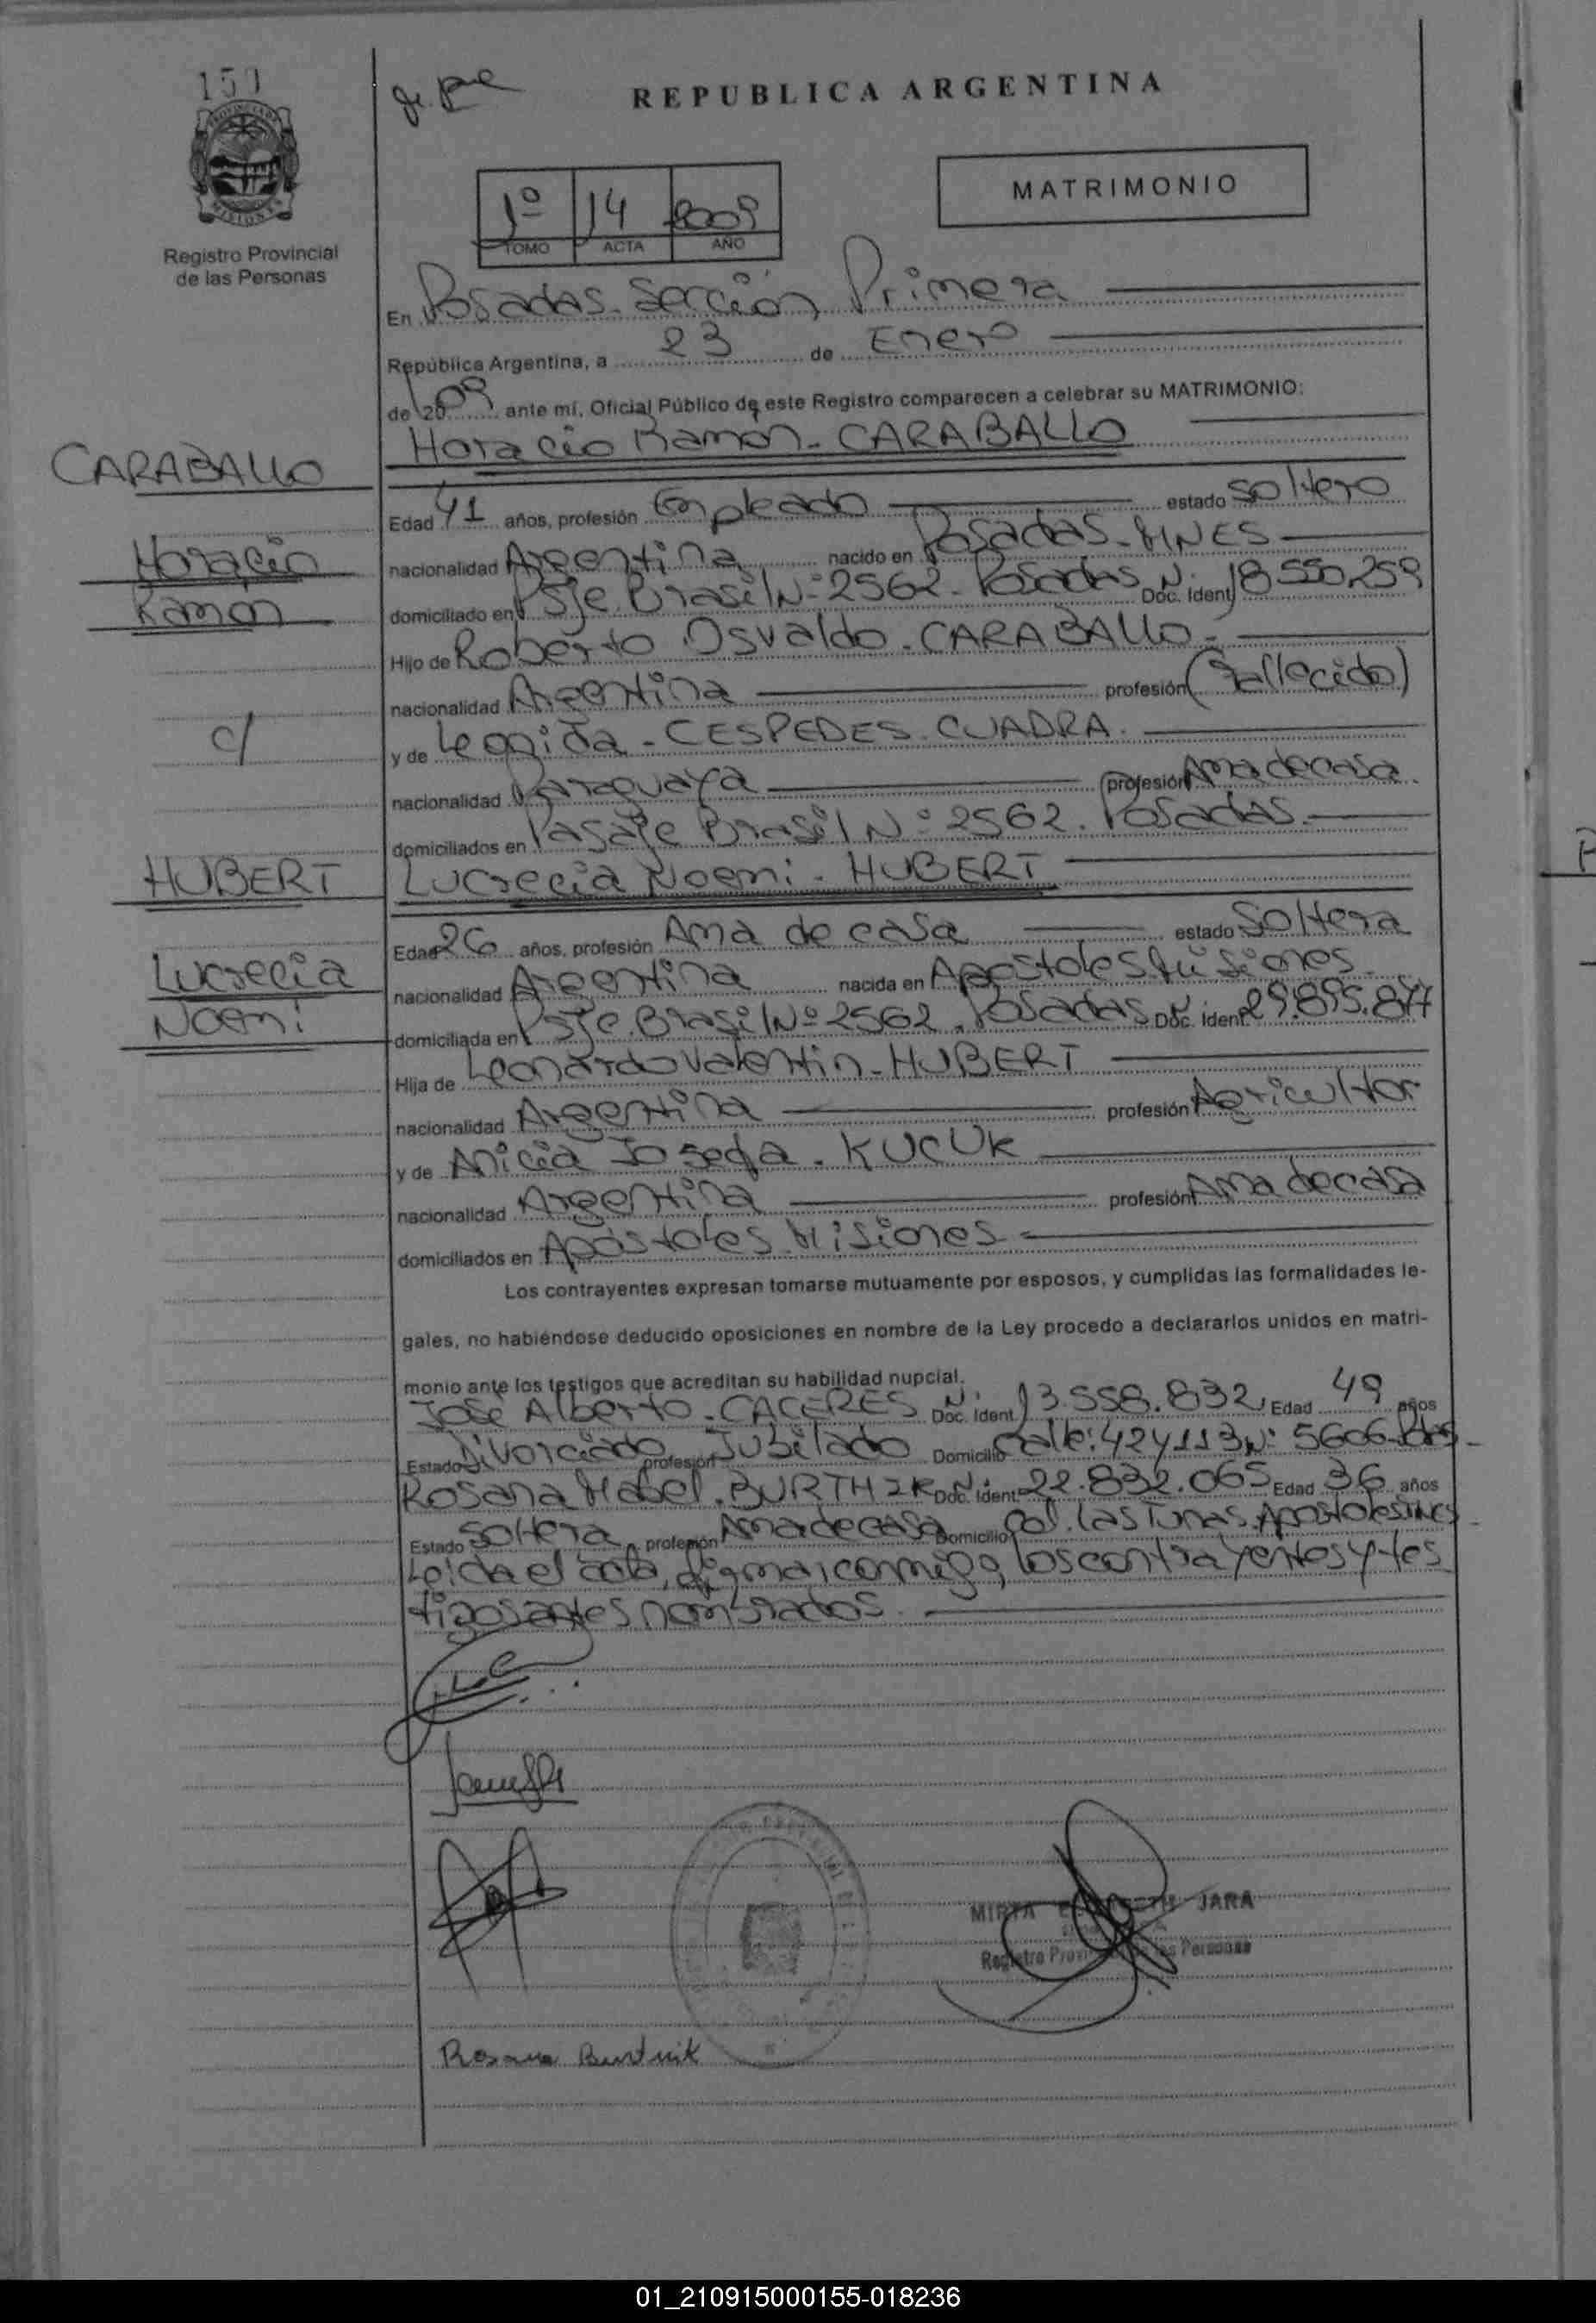 REPUBLICA ARGENTINA
MATRIMONIO
1º 14 2009
TOMO ACTA AÑO
Registro Provincial
de las Personas
En Posadas. Sección Primera
República Argentina, a 23 de Enero
de 2009 ante mí, Oficial Público de este Registro comparecen a celebrar su MATRIMONIO:
Horacio Ramon - CARABALLO
CARABALLO
Edad 41 años, profesión Empleado estado Soltero
Horacio
nacionalidad Argentina nacido en Posadas - MNES
Ramon
domiciliado en Psje. Brasil Nº 2562. Posadas N. Doc. Ident. 18.550.259
Hijo de Roberto Osvaldo - CARABALLO -
nacionalidad Argentina profesión (Fallecido)
c/
y de Leonida - CESPEDES. CUADRA.
nacionalidad Paraguaya profesión Ama de casa
domiciliados en Pasaje Brasil Nº 2562. Posadas.
HUBERT
Lucrecia Noemi - HUBERT
Edad 26 años, profesión Ama de casa estado Soltera
Lucrecia
nacionalidad Argentina nacida en Apostoles Misiones.
Noemi
domiciliada en Psje. Brasil Nº 2562. Posadas N. Doc. Ident. 29.895.877
Hija de Leonardo Valentin - HUBERT
nacionalidad Argentina profesión Agricultor
y de Anicia Josefa. KUCUK
nacionalidad Argentina profesión Ama de casa
domiciliados en Apóstoles Misiones
Los contrayentes expresan tomarse mutuamente por esposos, y cumplidas las formalidades le-
gales, no habiéndose deducido oposiciones en nombre de la Ley procedo a declararlos unidos en matri-
monio ante los testigos que acreditan su habilidad nupcial.
José Alberto - CACERES N. Doc. Ident. 13.558.832 Edad 49 años
Estado Divorciado profesión Jubilado Domicilio Calle: 424 113 Nº 5606
Rosana Mabel. N. Doc. Ident. 22.832.065 Edad 36 años
Estado Soltera profesión Ama de casa Domicilio Col. Las Tunas. Apostoles
Leida el acta, firman conmigo, los contrayentes y tes
tigos antes nombrados.
MIRTA JARA
Registro Provincial de las Personas
Rosana Burtnik
01_210915000155-018236